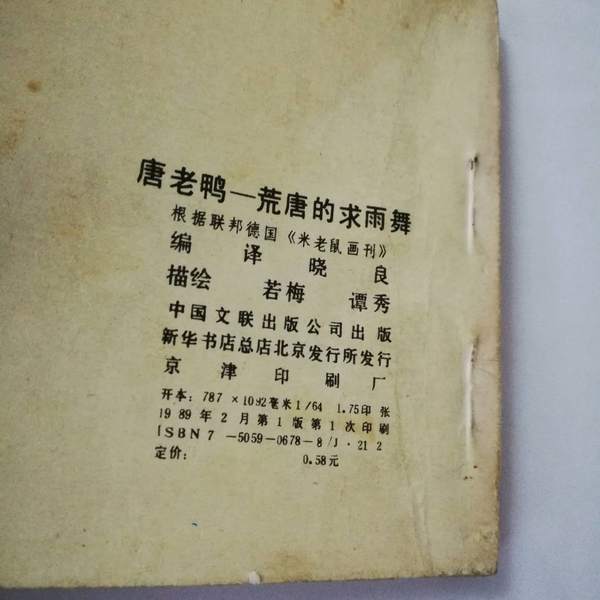 唐老鸭—荒唐的求雨舞
根据联邦德国《米老鼠画刊》
编 译 晓 良
描绘 若梅 谭秀
中国文联出版公司出版
新华书店总店北京发行所发行
京津印刷厂
开本：787×1092毫米1/64 1.75印张
1989年2月第1版第1次印刷
ISBN7-5059-0678-8/J·212
定价： 0.58元